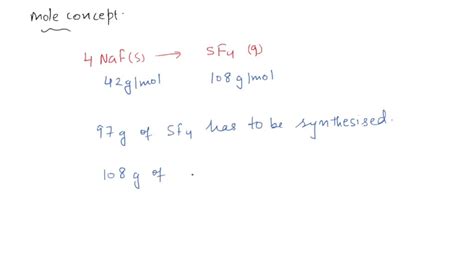 mole concept.
4 Naf(s) → SF4 (g)
42g/mol 108g/mol
97g of Sf4 has to be synthesised.
108g of